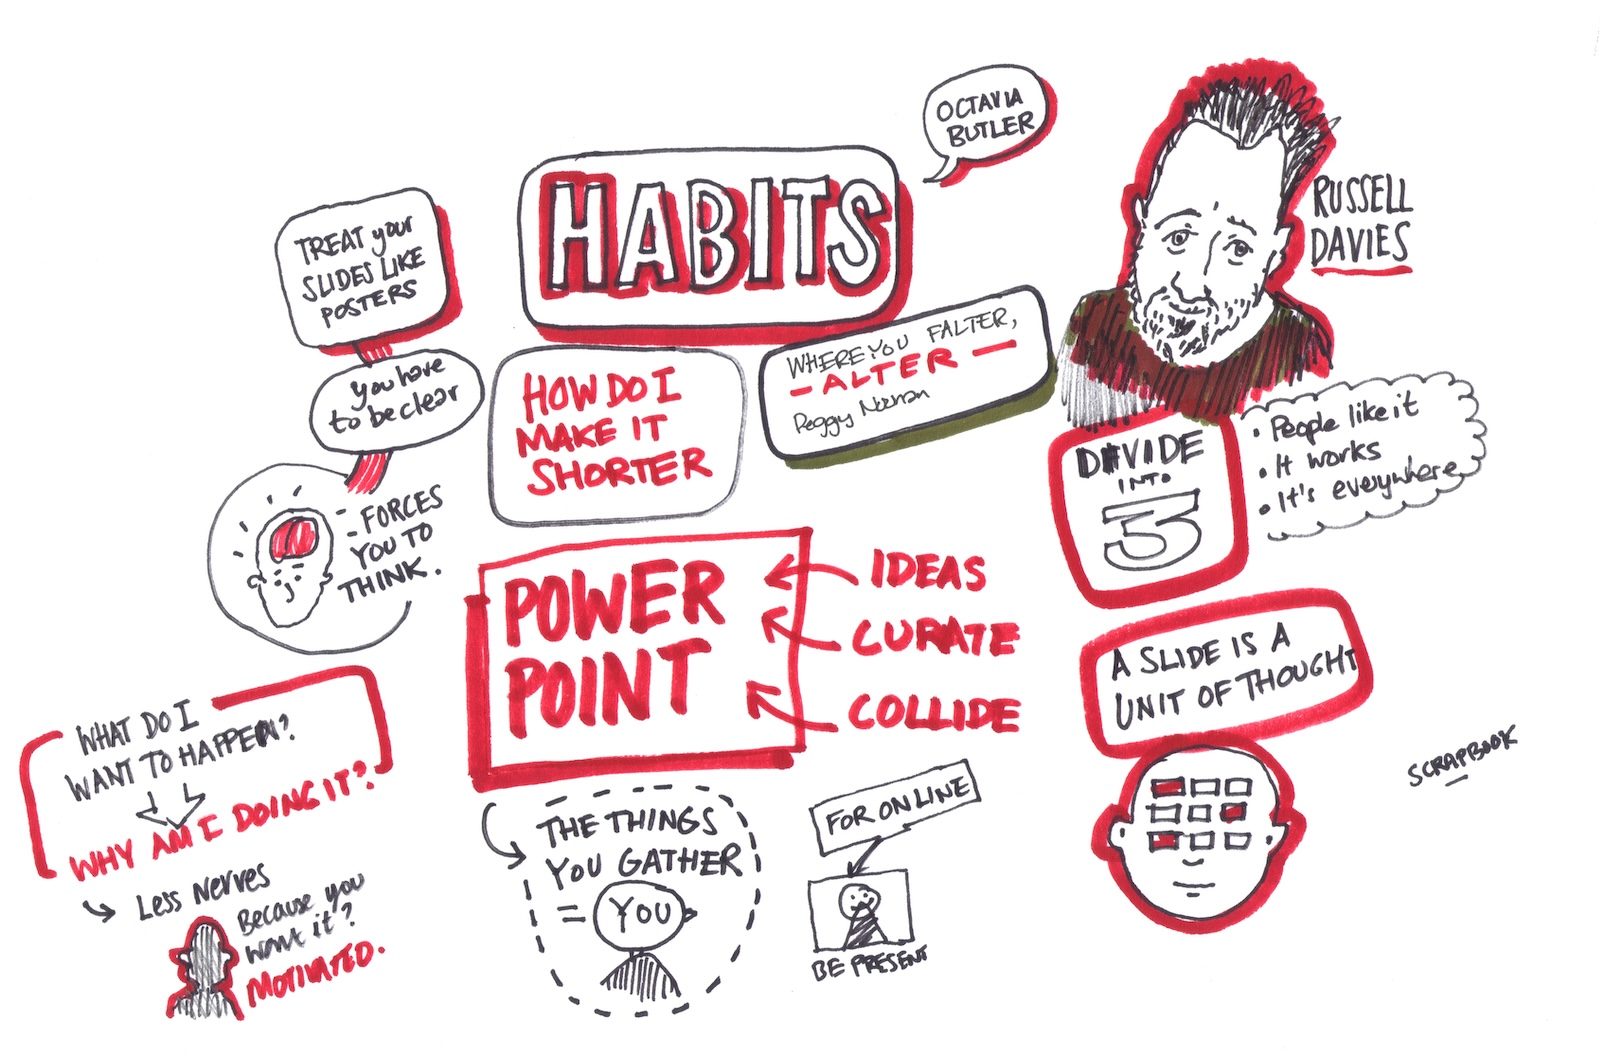 OCTAVIA
BUTLER
HABITS
RUSSELL
DAVIES
TREAT your
SLIDES LIKE
POSTERS
you have
to be clear
- FORCES
YOU TO
THINK.
HOW DO I
MAKE IT
SHORTER
WHERE YOU FALTER,
- ALTER -
Peggy Noonan
DIVIDE
INTO
3
• People like it
• It works
• It's everywhere
POWER
POINT
IDEAS
CURATE
COLLIDE
A SLIDE IS A
UNIT OF THOUGHT
SCRAPBOOK
WHAT DO I
WANT TO HAPPEN?
WHY AM I DOING IT?
Less Nerves
Because you
want it?
MOTIVATED.
THE THINGS
YOU GATHER
= YOU
FOR ONLINE
BE PRESENT